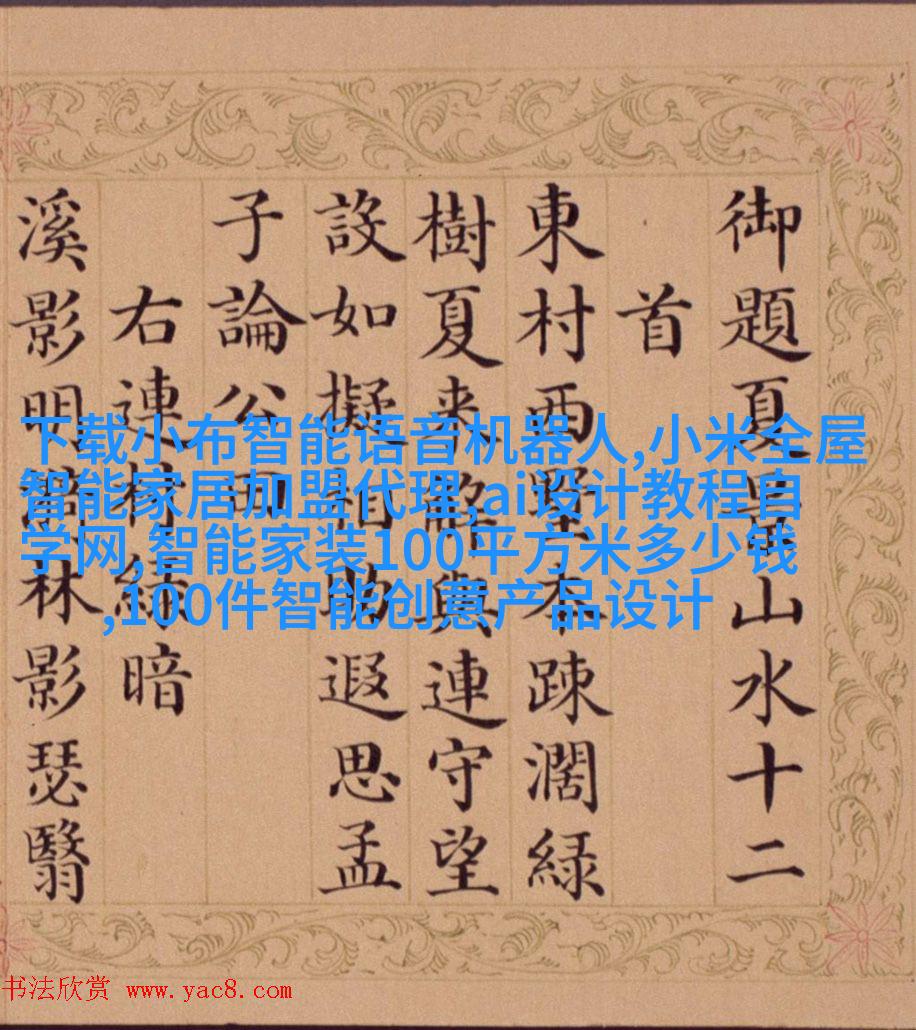 御題夏山水十二
首
東村西墅疎濶緑
樹夏來連守望
設如擬相助遐思孟
子論公田
右連村緑暗
溪影明林影瑟翳
下载小布智能语音机器人,小米全屋
智能家居加盟代理,ai设计教程自
学网,智能家装100平方米多少钱
,100件智能创意产品设计
书法欣赏 www.yac8.com